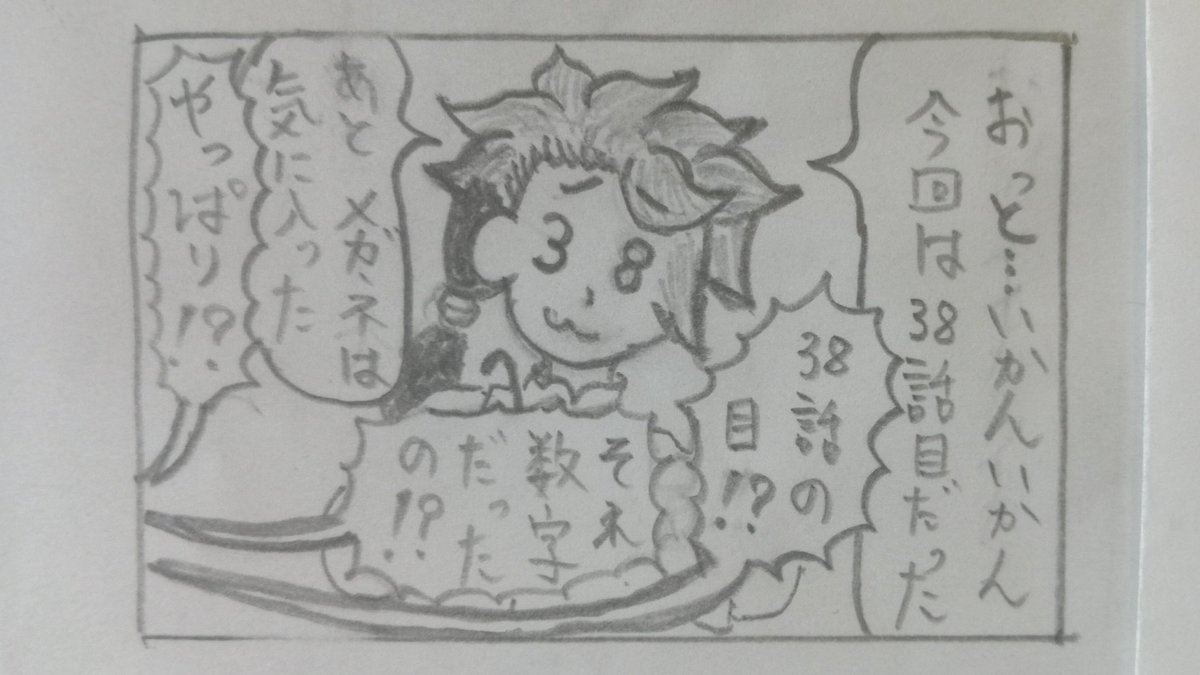 おっと…いかんいかん
今回は38話目だった
38話の
目!?
それ
数字
だった
の!?
あと メガネは
気に入った
やっぱり!?
38